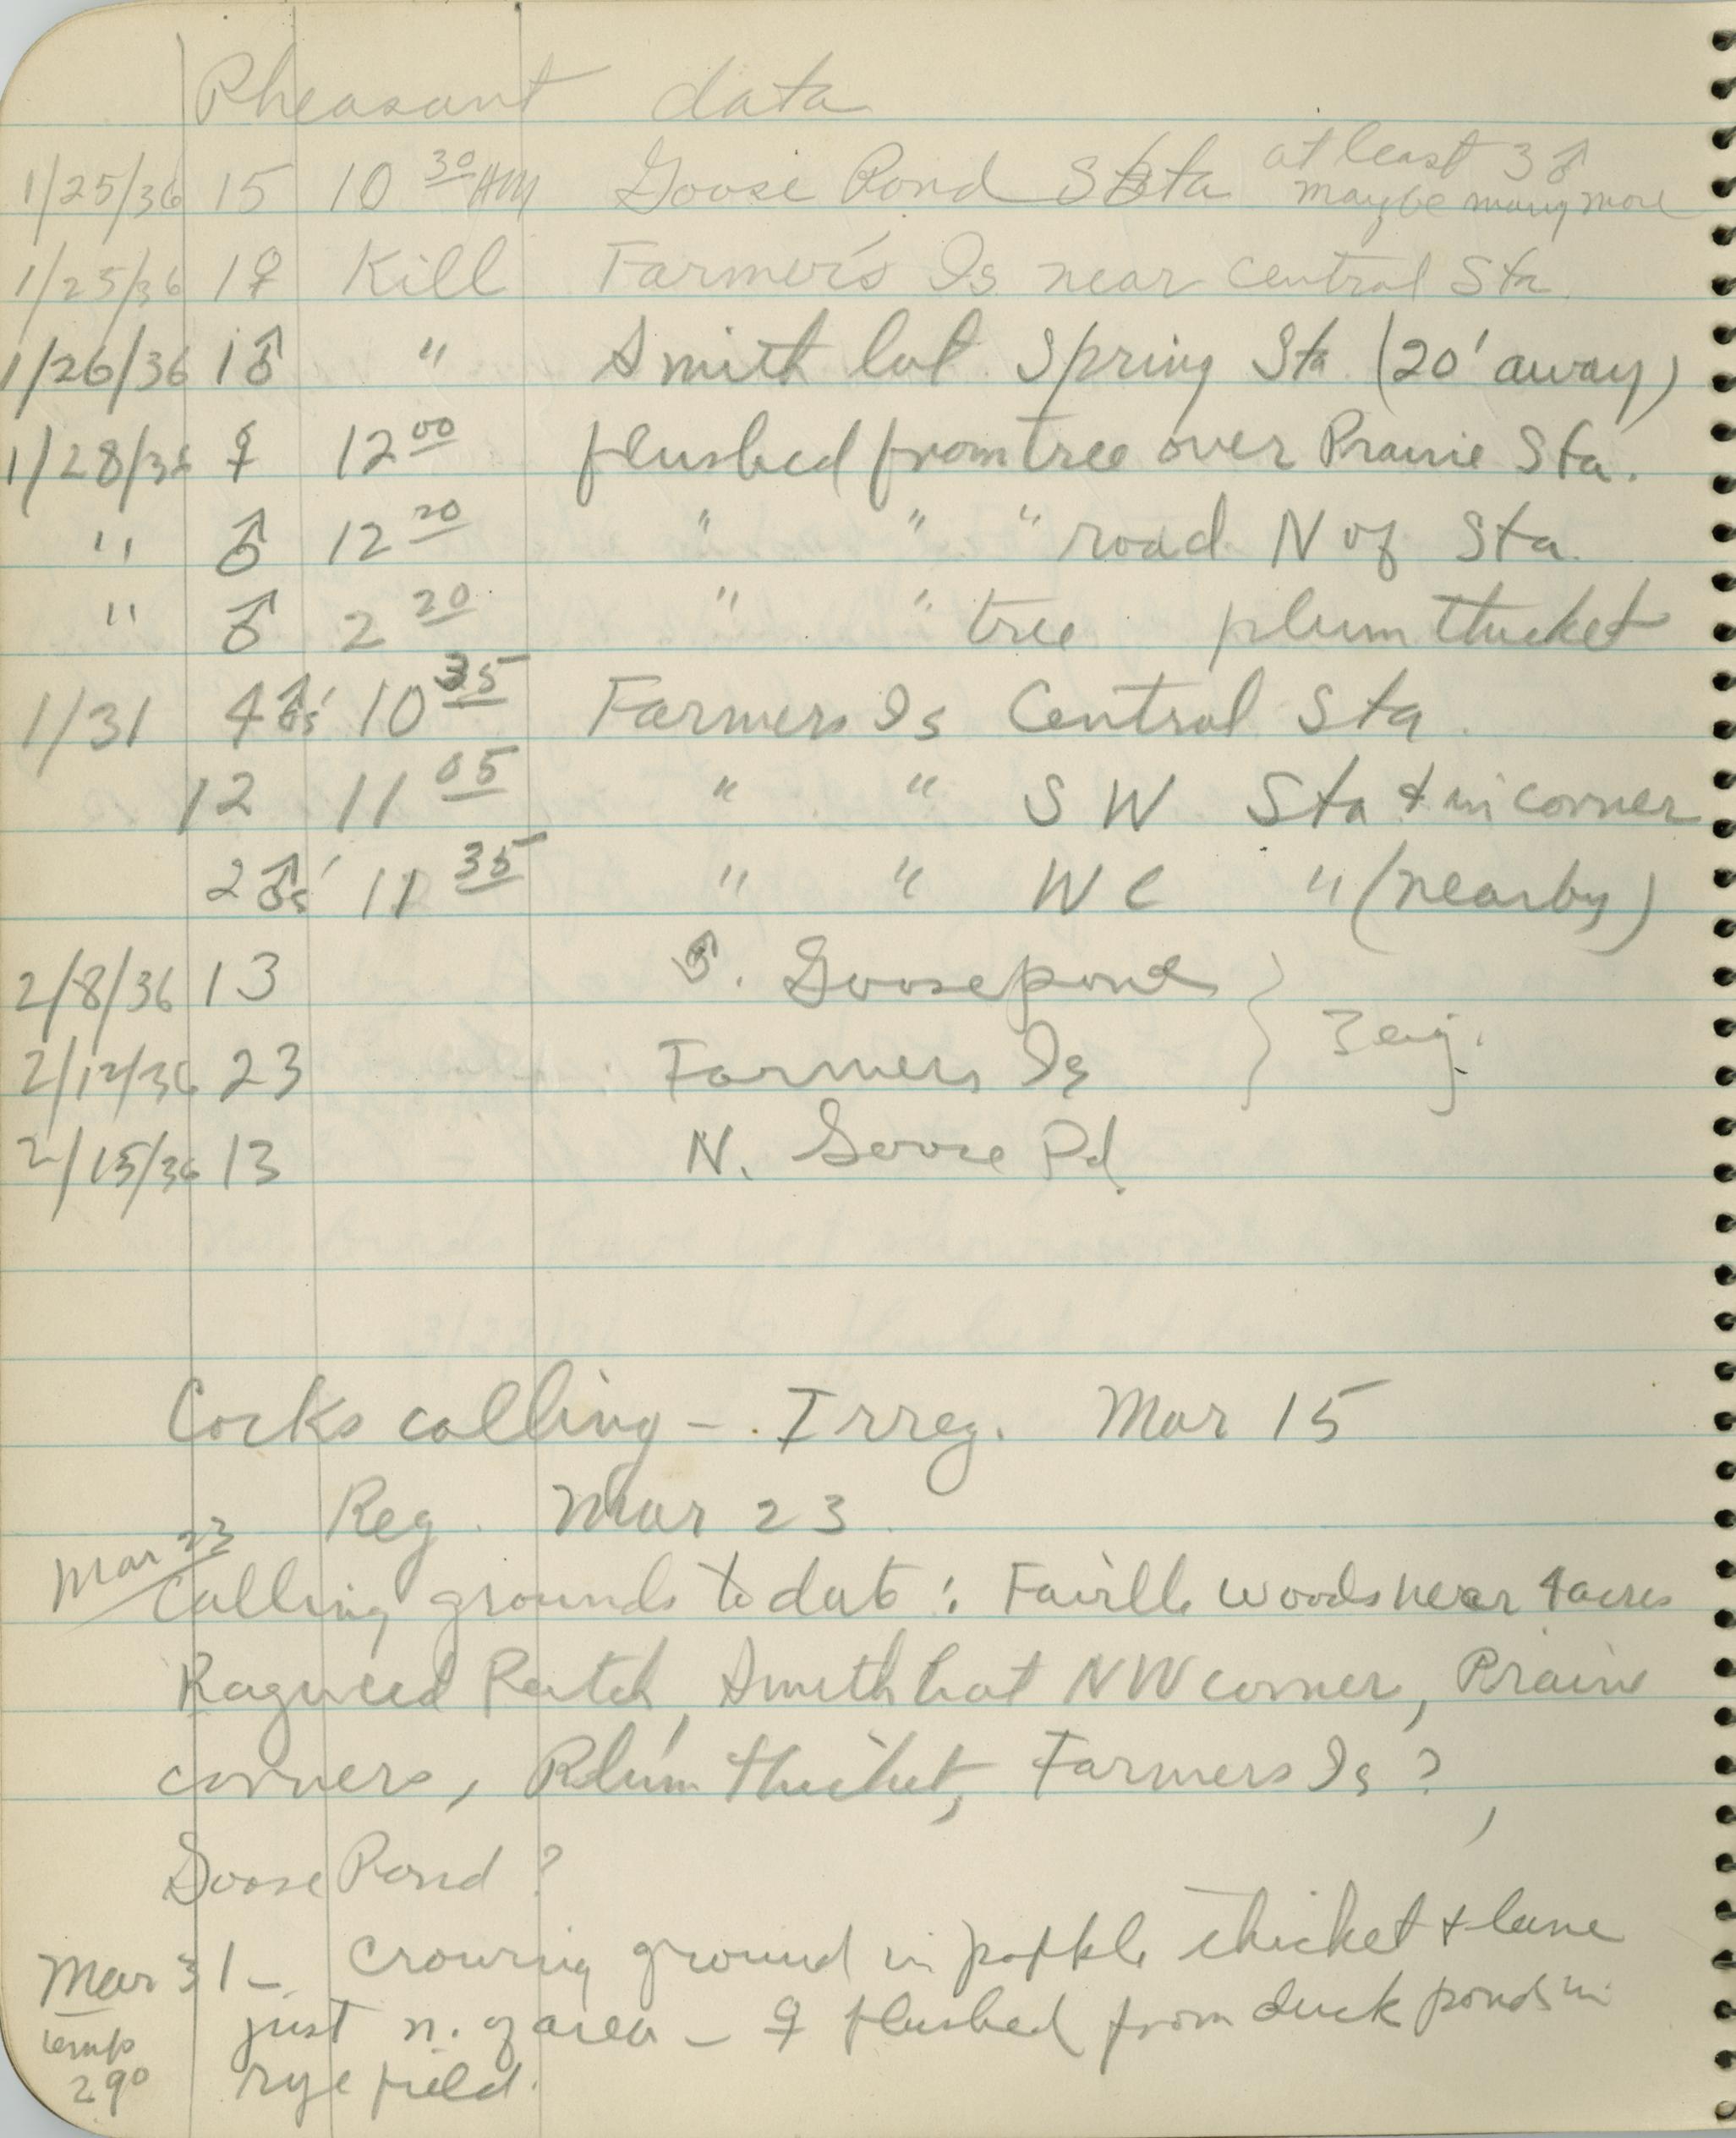 Pheasant data
1/25/36 15 10 30 AM Goose Pond Sta at least 3 ♂
maybe many more
1/25/36 1♀ Kill Farmer's Is near Central Sta.
1/26/36 1♂ " Smith lot Spring Sta (20' away)
1/28/36 ♀ 12 00 flushed from tree over Prairie Sta.
" ♂ 12 20 " " " road N of Sta.
" ♂ 2 20 " " tree plum thicket
1/31 4♂s' 10 35 Farmers Is Central Sta.
12 11 05 " " SW Sta & in corner
2♂s' 11 35 " " WC " (nearby)
2/8/36 13 S. Goosepond
2/12/36 23 Farmers Is
2/15/36 13 N. Goose Pd.
Cocks calling - Irreg. Mar 15
Reg. Mar 23
Mar 23
Calling grounds to date: Faville woods near 4 acres
Ragweed Patch, Smith lot NW corner, Prairie
corners, Plum thicket, Farmers Is?,
Goose Pond?
Mar 31 - Crowing ground in popple thicket & lane
just n. of area - ♀ flushed from duck ponds in
temp 29° rye field.